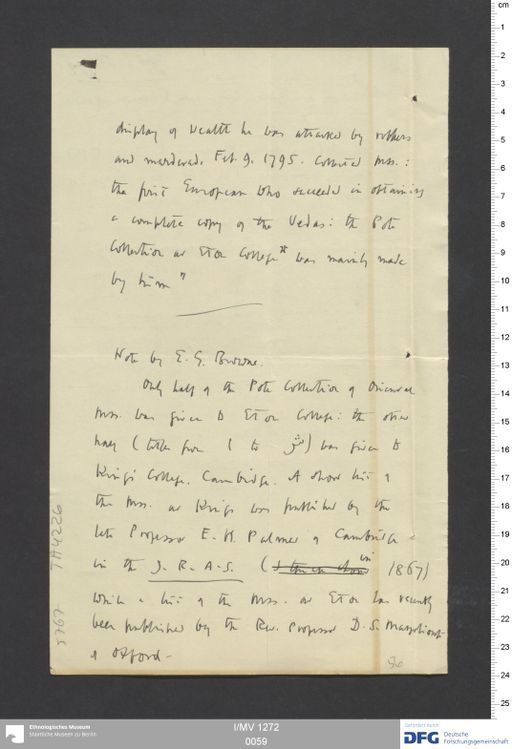 display of wealth he was attacked by robbers
and murdered, Feb. 9. 1795. Collected Mss.:
the first European who succeeded in obtaining
a complete copy of the Vedas: the Pote
Collection at Eton College* was mainly made
by him"
Note by E. G. Browne.
Only half of the Pote Collection of Oriental
Mss. was given to Eton College: the other
half (titles from ا to ش) was given to
King's College, Cambridge. A short list of
the Mss. at King's was published by the
late Professor E. H. Palmer of Cambridge
in the J. R. A. S. (I think about in 1867)
while a list of the Mss. at Eton has recently
been published by the Rev. Professor D. S. Margoliouth
of Oxford-
5767 TA4226
86
cm
1
2
3
4
5
6
7
8
9
10
11
12
13
14
15
16
17
18
19
20
21
22
23
24
25
Ethnologisches Museum
Staatliche Museen zu Berlin
I/MV 1272
0059
Gefördert durch
DFG Deutsche
Forschungsgemeinschaft